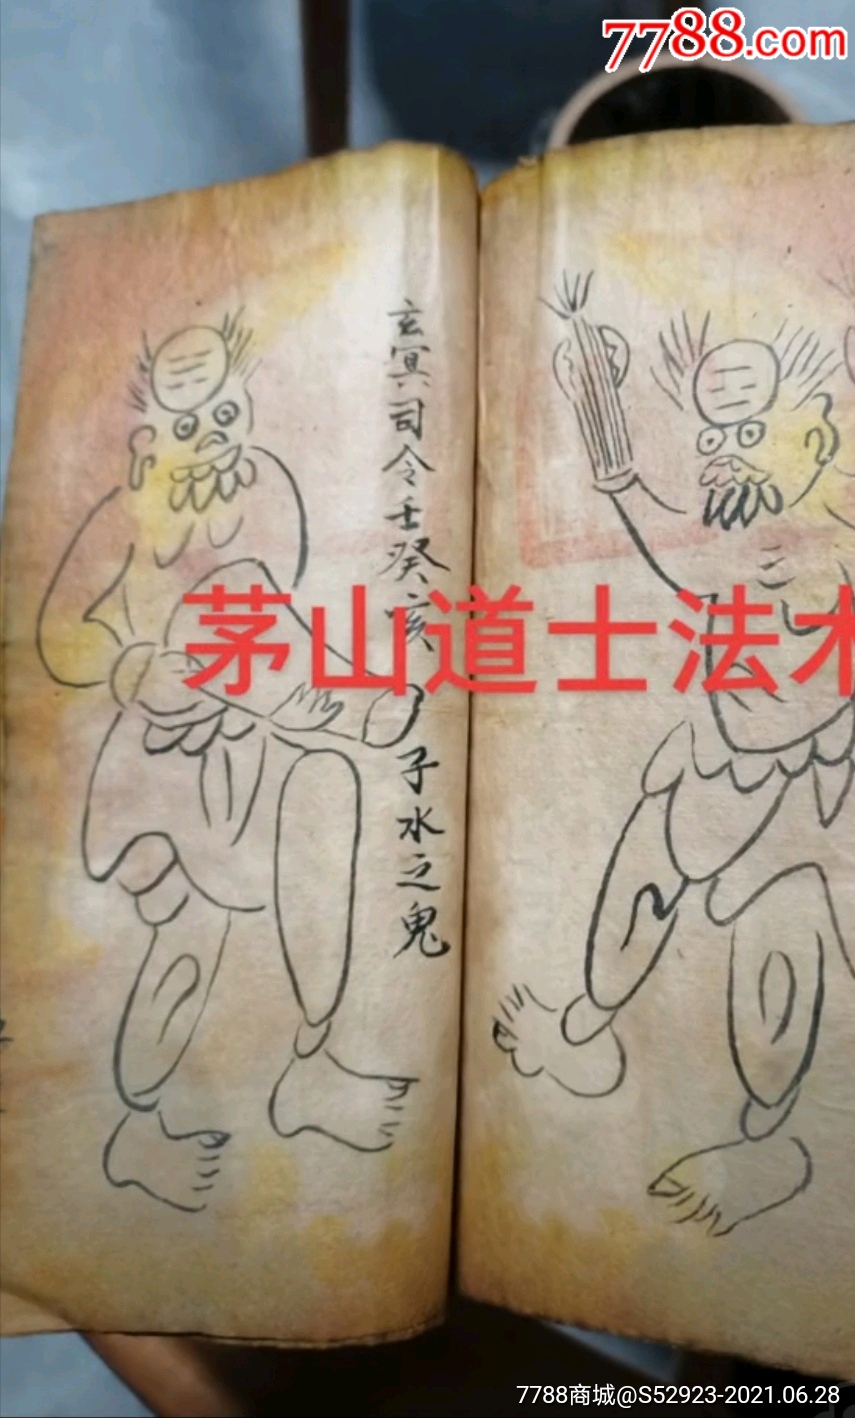 7788.com
玄冥司令壬癸亥
子水之鬼
茅山道士法术
7788商城@S52923-2021.06.28